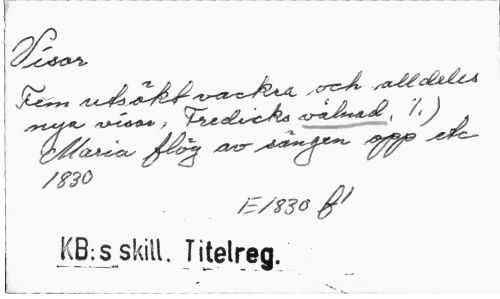 Visor
Fem utsökt vackra och alldeles
nya visor, Fredicks vålnad, 1.)
Maria flög av sängen opp etc
1830
E1830 f'
KB:s skill. Titelreg.